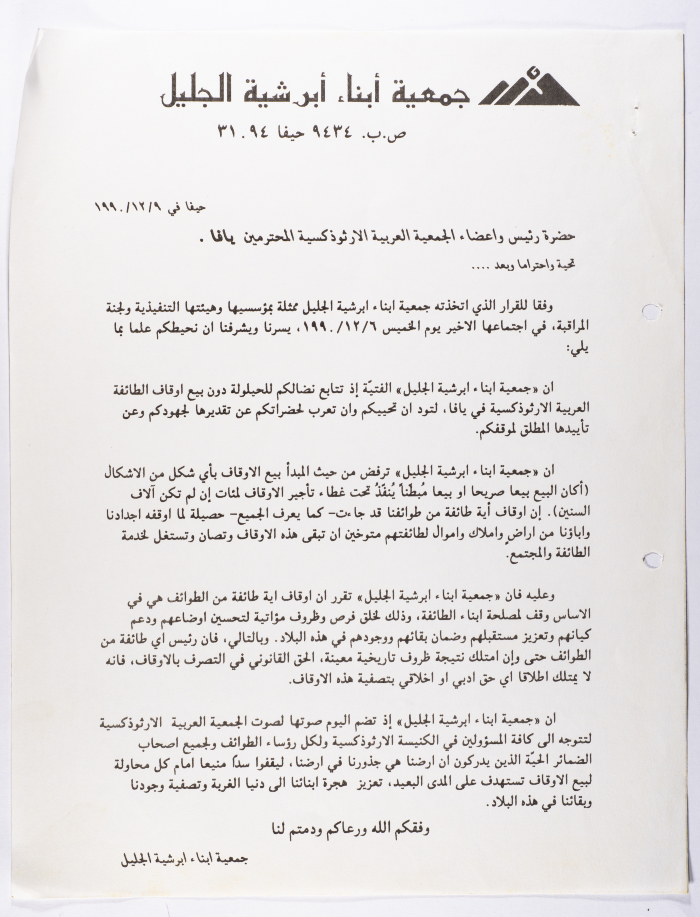 جمعية أبناء أبرشية الجليل
ص.ب. ٩٤٣٤ حيفا ٣١٠٩٤
حيفا في ١٩٩٠/١٢/٩
حضرة رئيس واعضاء الجمعية العربية الارثوذكسية المحترمين يافا .
تحية واحتراما وبعد ....
وفقا للقرار الذي اتخذته جمعية ابناء ابرشية الجليل ممثلة بمؤسسيها وهيئتها التنفيذية ولجنة
المراقبة، في اجتماعها الاخير يوم الخميس ١٩٩٠/١٢/٦، يسرنا ويشرفنا ان نحيطكم علما بما
يلي:
ان «جمعية ابناء ابرشية الجليل» الفتيّة إذ تتابع نضالكم للحيلولة دون بيع اوقاف الطائفة
العربية الارثوذكسية في يافا، لتود ان تحييكم وان تعرب لحضراتكم عن تقديرها لجهودكم وعن
تأييدها المطلق لموقفكم.
ان «جمعية ابناء ابرشية الجليل» ترفض من حيث المبدأ بيع الاوقاف بأي شكل من الاشكال
(أكان البيع بيعا صريحا او بيعا مُبطّناً يُنفّذُ تحت غطاء تأجير الاوقاف لمئات إن لم تكن آلاف
السنين). إن اوقاف أية طائفة من طوائفنا قد جاءت- كما يعرف الجميع- حصيلة لما اوقفه اجدادنا
واباؤنا من اراضٍ واملاك واموال لطائفتهم متوخين ان تبقى هذه الاوقاف وتصان وتستغل لخدمة
الطائفة والمجتمع.
وعليه فان «جمعية ابناء ابرشية الجليل» تقرر ان اوقاف اية طائفة من الطوائف هي في
الاساس وقف لمصلحة ابناء الطائفة، وذلك لخلق فرص وظروف مؤاتية لتحسين اوضاعهم ودعم
كيانهم وتعزيز مستقبلهم وضمان بقائهم ووجودهم في هذه البلاد. وبالتالي، فان رئيس اي طائفة من
الطوائف حتى وإن امتلك نتيجة ظروف تاريخية معينة، الحق القانوني في التصرف بالاوقاف، فانه
لا يمتلك اطلاقا اي حق ادبي او اخلاقي بتصفية هذه الاوقاف.
ان «جمعية ابناء ابرشية الجليل» إذ تضم اليوم صوتها لصوت الجمعية العربية الارثوذكسية
لتتوجه الى كافة المسؤولين في الكنيسة الارثوذكسية ولكل رؤساء الطوائف ولجميع اصحاب
الضمائر الحيّة الذين يدركون ان ارضنا هي جذورنا في ارضنا، ليقفوا سدّا منيعا امام كل محاولة
لبيع الاوقاف تستهدف على المدى البعيد، تعزيز هجرة ابنائنا الى دنيا الغربة وتصفية وجودنا
وبقائنا في هذه البلاد.
وفقكم الله ورعاكم ودمتم لنا
جمعية ابناء ابرشية الجليل